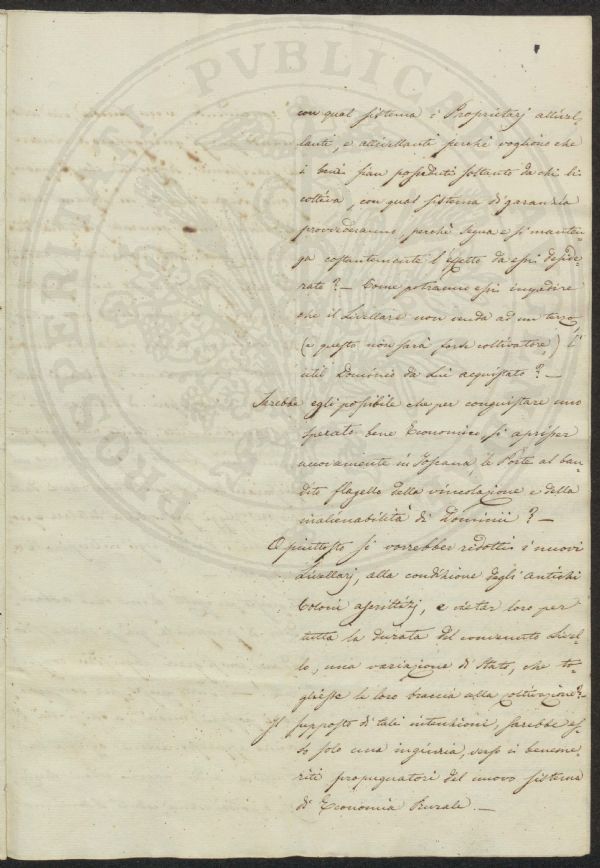 con qual sistema i Proprietarj allivel-
lanti, e allivellanti perché vogliono che
i beni sian posseduti soltanto da chi li
coltiva, con qual sistema di garanzia
provvederanno, perché segua e si manten-
ga costantemente l'effetto da essi deside-
rato? — Come potranno essi impedire
che il Livellare non venda ad un terzo,
(e questo non sarà forse coltivatore,) l'
util Dominio da Lui acquistato? —
Sarebbe egli possibile che per conquistare uno
sperato bene Economico, si aprisser
nuovamente in Toscana le Porte al ban-
dito flagello della vincolazione e della
inalienabilità di Dominii? —
O piuttosto si vorrebber ridotti i nuovi
Livellarj, alla condizione degli antichi
Coloni ascrittizj, e vietar loro per
tutta la durata del convenuto Livel-
lo, una variazione di Stato, che to-
gliesse le loro braccia alla coltivazione? —
Il supposto di tali intenzioni, sarebbe es-
so solo una ingiuria, verso i beneme-
riti propugnatori del nuovo sistema
di Economia Rurale. —
PROSPERITATI PVBLICAE